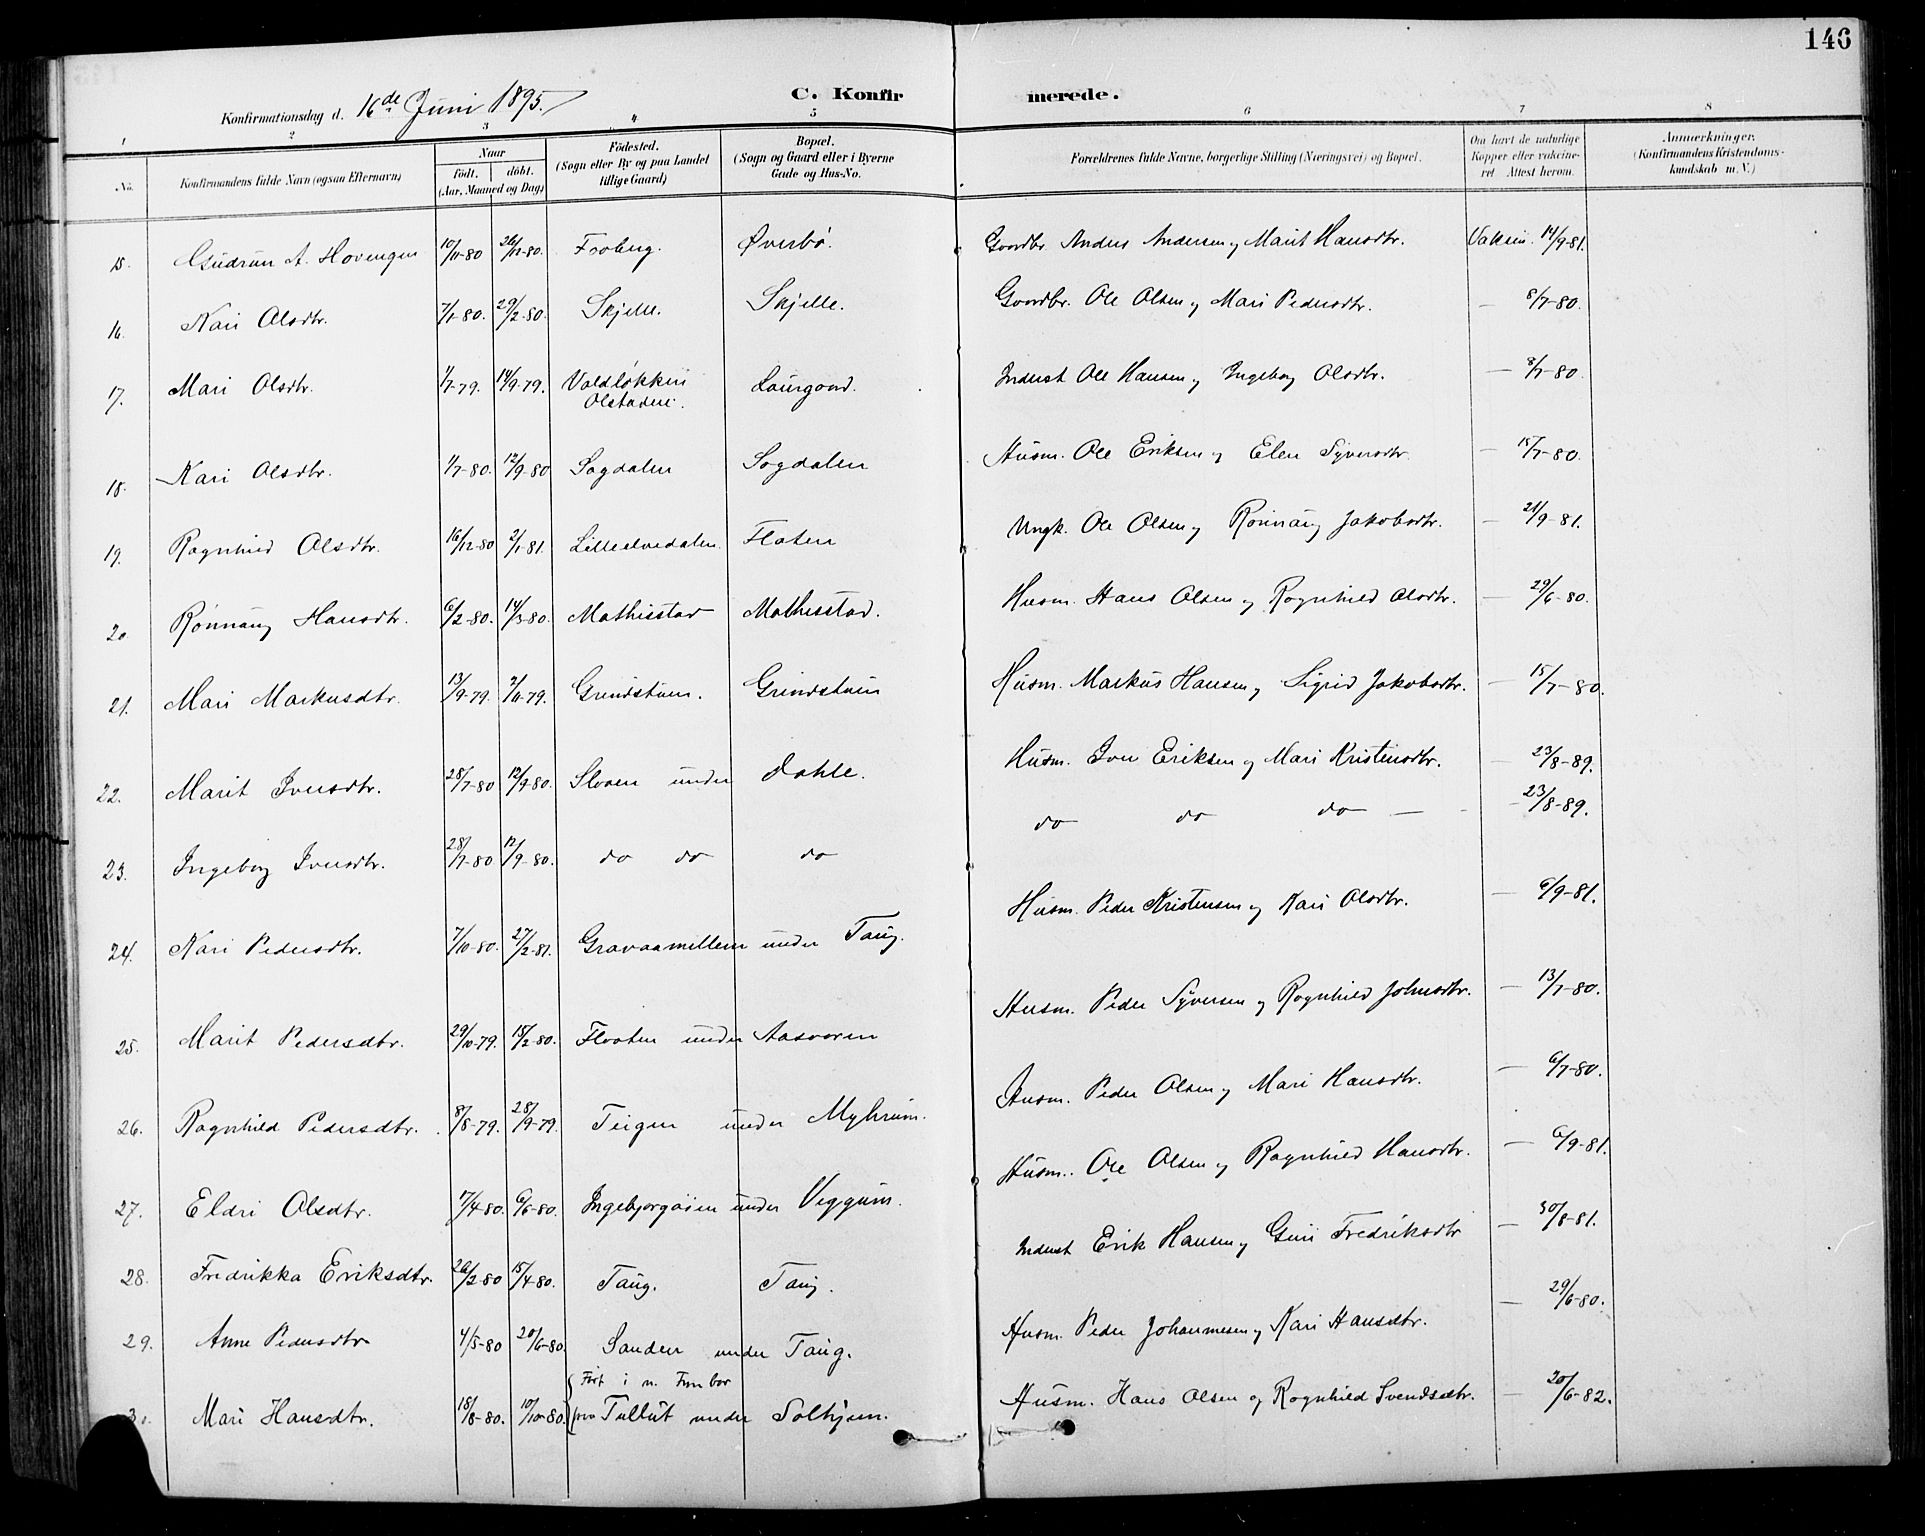 146
C. Konfirmerede.
Konfirmationsdag d. 16de Juni 1895.
1 2 3 4 5 6 7 8
No. Konfirmandens fulde Navn (ogsaa Efternavn) Naar födt. döbt. (Aar, Maaned og Dag) Födested. (Sogn eller By og paa Landet tillige Gaard) Bopæl. (Sogn og Gaard eller i Byerne Gade og Hus-No. Forældrenes fulde Navne, borgerlige Stilling (Næringsvei) og Bopæl. Om havt de naturlige Kopper eller vakcineret Attest herom. Anmærkninger. (Konfirmandens Kristendomskundskab m. V.)
15. Gudrun A. Hovengen 10/11-80 26/12-80. Froberg. Øverbö. Gaardbr. Anders Andersen og Marit Hansdtr. Vaksin. 14/9-81.
16. Kari Olsdtr. 7/1-80. 29/2-80. Skjelle. Skjelle. Gaardbr. Ole Olsen og Mari Pedersdtr. — 8/7-80.
17. Mari Olsdtr. 1/7-79. 14/9-79. Voldløkken Olstaden. Laurgaard. Inderst Ole Hansen og Ingeborg Olsdtr. — 8/7-80.
18. Kari Olsdtr. 1/7-80. 12/9-80 Sogdalen Sogdalen Husm. Ole Eriksen og Elen Syversdtr. — 15/7-80.
19. Ragnhild Olsdtr. 16/12-80 2/1-81. Lilleelvedalen Floten Ungk. Ole Olsen og Rönnaug Jakobsdtr. — 21/9-81.
20. Rønnaug Hansdtr. 6/2-80. 14/3-80. Mathisstad Mathisstad. Husm. Hans Olsen og Ragnhild Olsdtr. — 29/6-80.
21. Mari Markusdtr. 13/9-79. 2/11-79. Grindstuen. Grindstuen Husm. Markus Hansen og Sigrid Jakobsdtr. — 15/7-80.
22. Marit Iversdtr. 28/7-80 12/9-80. Sloaen under Dahle. Husm. Iver Eriksen og Mari Kristensdtr. — 23/8-89.
23. Ingeborg Iversdtr. 28/7-80 12/9-80. do do do do do do — — 23/8-89.
24. Kari Pedersdtr. 7/10-80. 27/2-81. Gravaamellem under Taug. Husm. Peder Kristensen og Kari Olsdtr. — 6/9-81.
25. Marit Pedersdtr. 29/10-79. 15/2-80. Flaaten under Aasvaren Husm. Peder Syversen og Ragnhild Johnsdtr. — 13/7-80.
26. Ragnhild Pedersdtr. 8/8-79. 28/9-79. Teigen under Myhrum. Husm. Peder Olsen og Mari Hansdtr. — 6/7-80.
27. Eldri Olsdtr. 17/4-80. 6/6-80. Ingebjorgøien under Veggum. Husm. Ole Olsen og Ragnhild Hansdtr. — 6/9-81.
28. Fredrikka Eriksdtr. 26/2-80 15/4-80. Taug. Taug. Inderst Erik Hansen og Guri Fredriksdtr — 30/8-81.
29. Anne Pedersdtr 4/5-80 20/6-80. Sanden under Taug. Husm. Peder Johannesen og Kari Hansdtr. — 29/6-80.
30. Mari Hansdtr. 18/8-80. 10/10-80. Født i n. Fron bor paa Tullut under Solhjem. Husm. Hans Olsen og Ragnhild Svendsdtr. — 20/6-82.